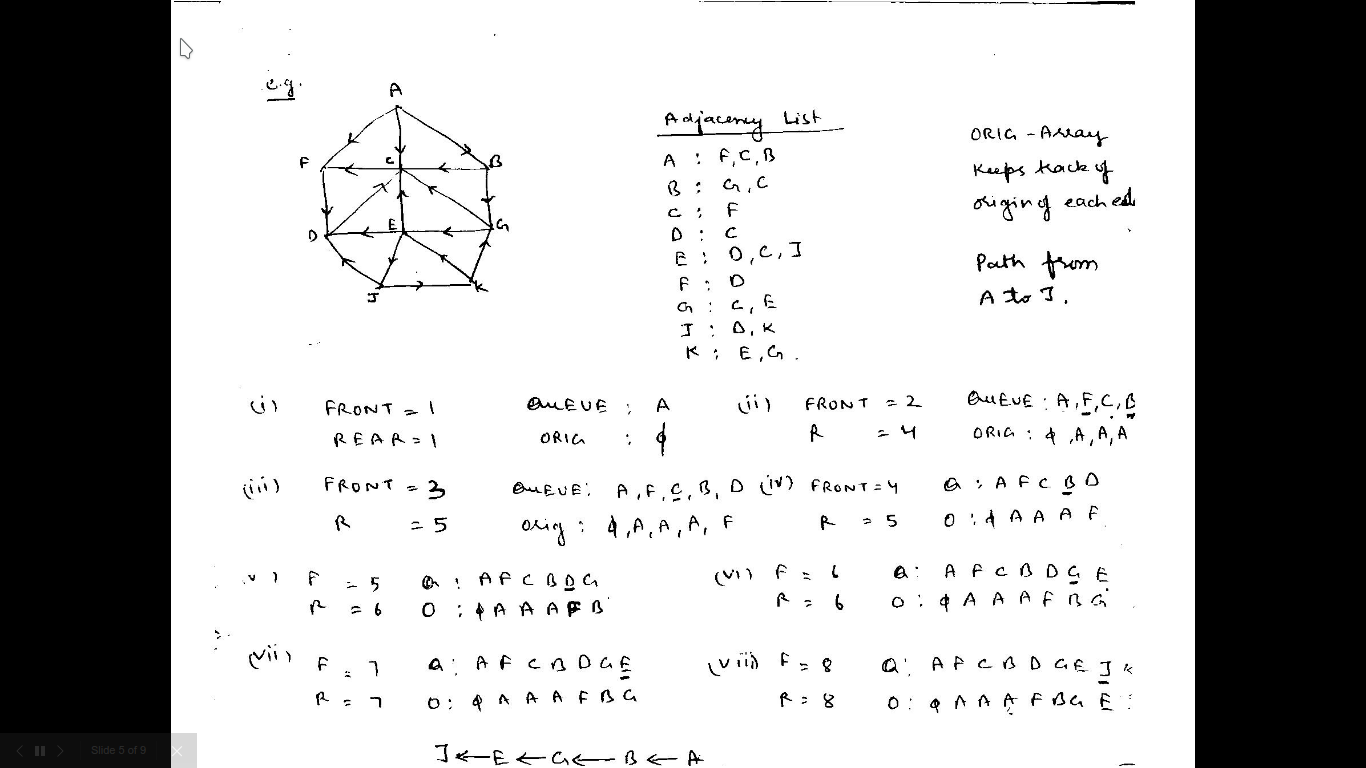 e.g.
A
F C B
D E G
J K
Adjacency List
A : F, C, B
B : G, C
C : F
D : C
E : D, C, J
F : D
G : C, E
J : D, K
K : E, G.
ORIG - Array
Keeps track of
origin of each ed
Path from
A to J.
(i) FRONT = 1 QUEUE : A
REAR = 1 ORIG : ϕ
(ii) FRONT = 2 QUEUE : A, F, C, B
R = 4 ORIG : ϕ, A, A, A
(iii) FRONT = 3 QUEUE : A, F, C, B, D
R = 5 orig : ϕ, A, A, A, F
(iv) FRONT = 4 Q : A F C B D
R = 5 O : ϕ A A A F
v) F = 5 Q : A F C B D G
R = 6 O : ϕ A A A F B
(vi) F = 6 Q : A F C B D G E
R = 6 O : ϕ A A A F B G
(vii) F = 7 Q : A F C B D G E
R = 7 O : ϕ A A A F B G
(viii) F = 8 Q : A F C B D G E J K
R = 8 O : ϕ A A A F B G E
J ← E ← G ← B ← A
Slide 5 of 9